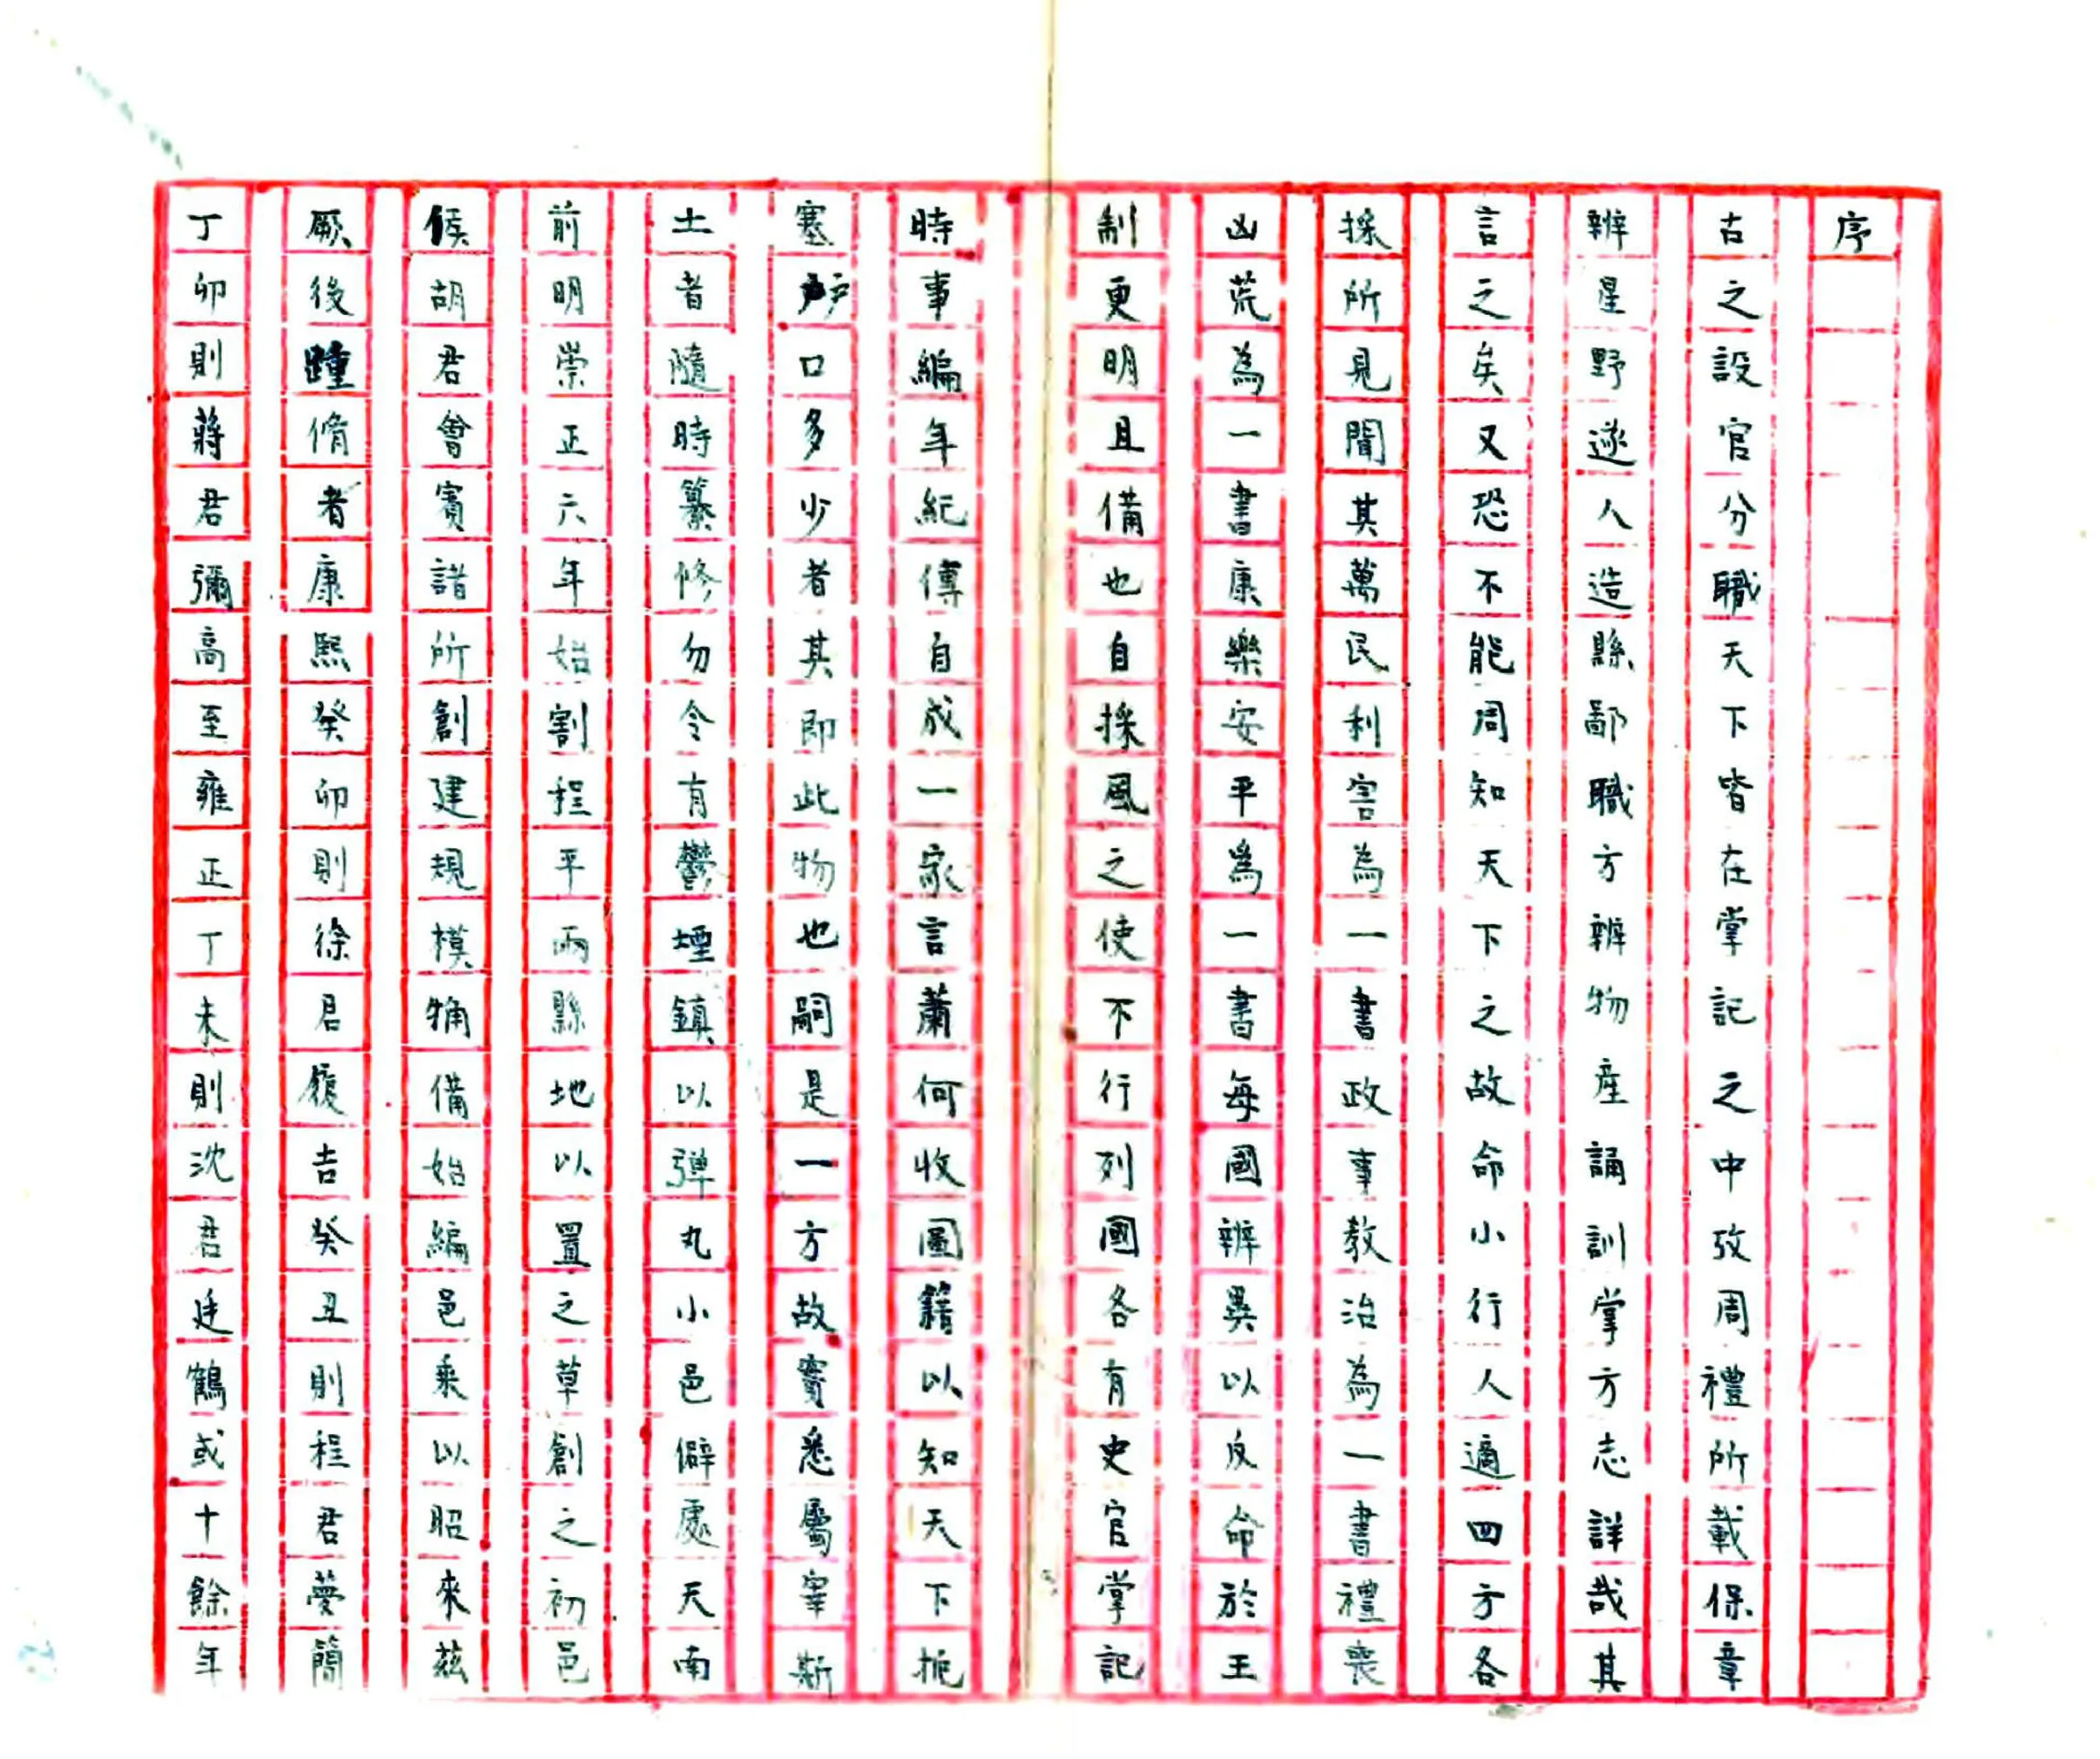 序
古之設官分職天下皆在掌記之中攷周禮所載保章
辨星野遂人造縣鄙職方辨物産誦訓掌方志詳哉其
言之矣又恐不能周知天下之故命小行人適四方各
採所見聞其萬民利害為一書政事教治為一書禮喪
凶荒為一書康樂安平為一書每國辨異以反命於王
制更明且備也自採風之使不行列國各有史官掌記
時事編年紀傳自成一家言蕭何收圖籍以知天下扼
塞戶口多少者其即此物也嗣是一方故實悉屬宰斯
土者隨時纂修勿令有鬱堙鎮以弹丸小邑僻處天南
前明崇正六年始割程平兩縣地以置之草創之初邑
候胡君會賓諸所創建規模犕備始編邑乘以昭來茲
厥後踵脩者康熙癸卯則徐君履吉癸丑則程君夢簡
丁卯則蔣君彌高至雍正丁未則沈君廷鶴或十餘年